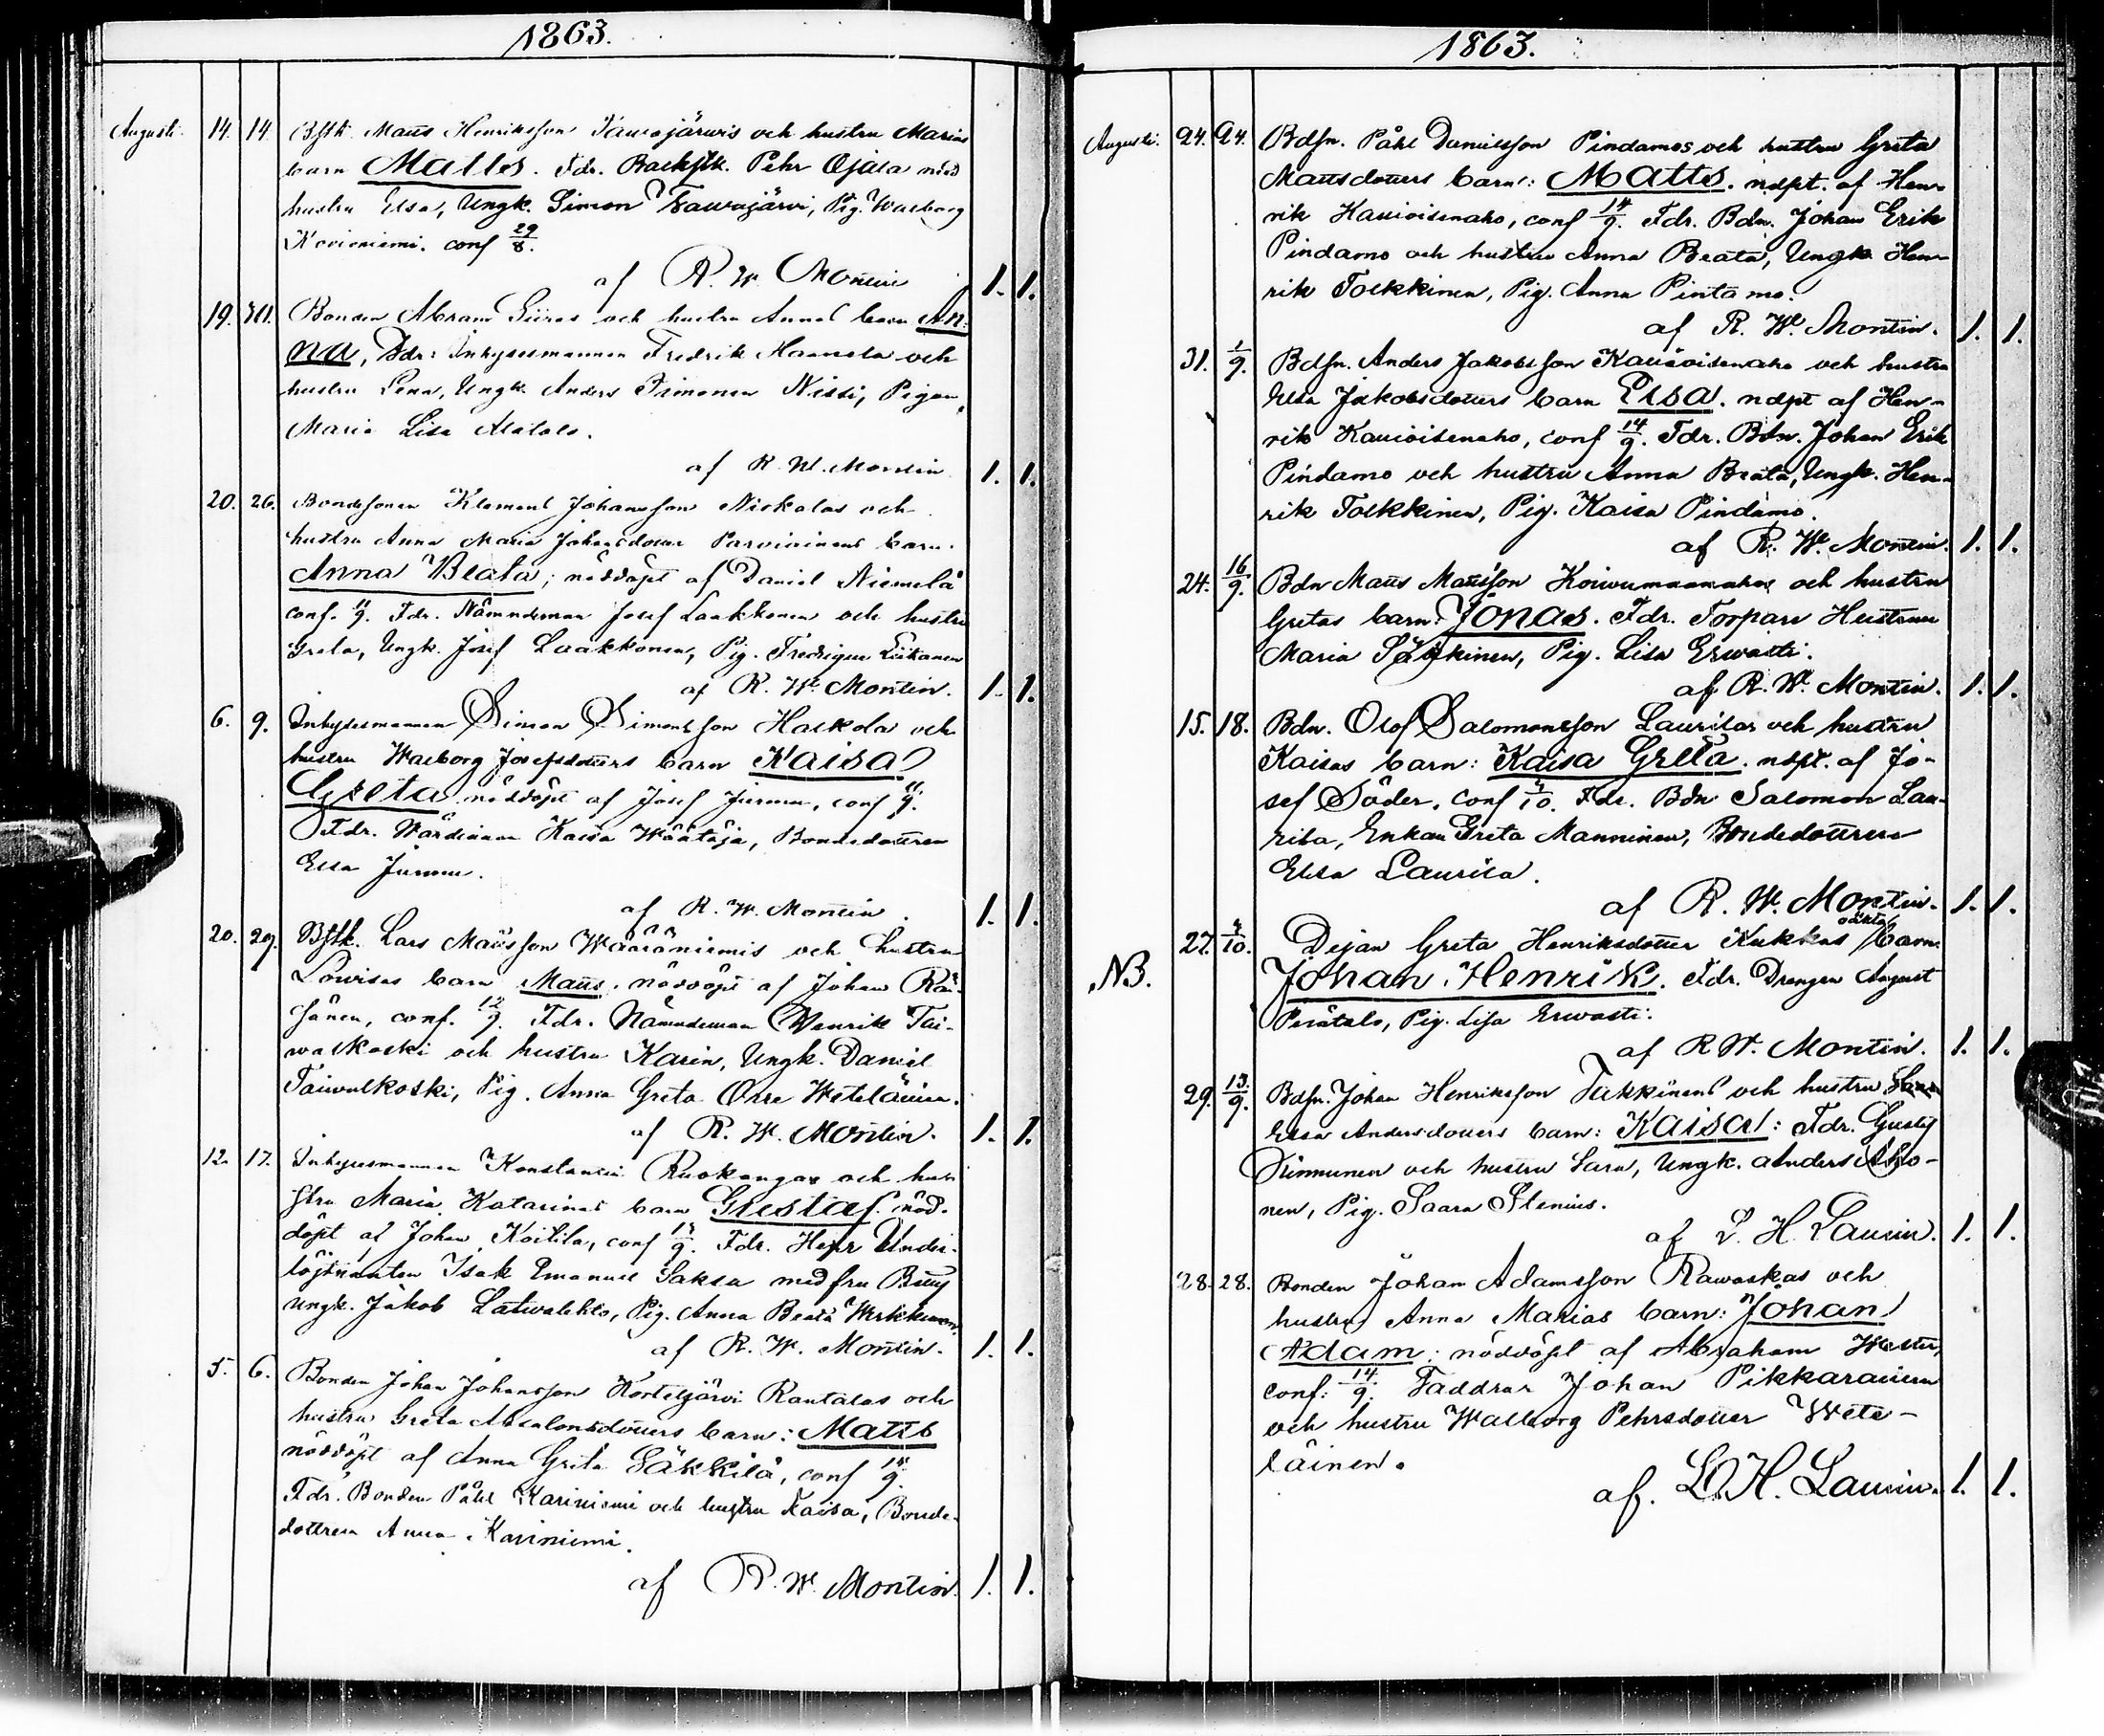 1863.
Augusti. 14. 14. Bfsk. Matts Henriksson Tawajärwis och hustru Marias
barn Matts. Fdr. Backstk. Pehr Ojala med
hustru Elsa, Ungk. Simon Tawajärwi, Pig. Walborg
Koviniemi. conf 29/8.
af R. W. Montin 1. 1.
19. Bonden Abram Siiras och hustru Annas barn An-
na, Fdr: Inhysesmannen Fredrik Hannela och
hustru Lena, Ungk. Anders Simonen Nissi, Pigan
Maria Lisa Alatalo.
af R. W. Montin 1. 1.
20. 26. Bondesonen Klement Johansson Niskalas och
hustru Anna Maria Johansdotter Parviainens barn.
Anna Beata; nöddöpt af Daniel Niemelä
conf. 11/9. Fdr. Nämndeman Josef Laakkonen och hustru
Greta, Ungk. Josef Laakkonen, Pig. Fredrique Liikanen
af R. W. Montin. 1. 1.
6. 9. Inhysesmannen Simon Simonsson Haskola och
hustru Walborg Josefsdotters barn Kaisa
Greta nöddöpt af Josef Jurmu, conf 11/9.
Fdr. Värdinnan Kaisa Wäätäjä, Bondedottren
Elsa Jurmu.
af R. W. Montin. 1. 1.
20. 29. Bfsk. Lars Mattsson Wääräniemis och hustru
Lowisas barn Matts. nöddöpt af Johan Räi-
sänen, conf. 12/9. Fdr. Nämndeman Henrik Tai-
walkoski och hustru Karin, Ungk. Daniel
Taiwalkoski, Pig. Anna Greta Orre Weteläinen.
af R. W. Montin. 1. 1.
12. 17. Inhysesmannen Konstantin Ruokangas och hu-
stru Maria Katarinas barn Gustaf. nöd-
döpt af Johan Koitila, conf 13/9. Fdr. Herr Under-
löjtnanten Isak Emanuel Saksa med fru
ungk. Jakob Latwalehto, Pig. Anna Beata Werkkunen.
af R. W. Montin. 1. 1.
5. 6. Bonden Johan Johansson Kortetjärvi Rantalas och
hustru Greta Absalonsdotters barn: Matts
nöddöpt af Anna Greta Säkkilä, conf 14/9.
Fdr. Bonden Påhl Kariniemi och hustru Kaisa, Bonde-
dottren Anna Kariniemi.
af R. W. Montin. 1. 1.
1863.
Augusti. 24. 24. Bdsn. Påhl Danielsson Pindamos och hustru Greta
Mattsdotters barn: Matts. ndpt. af Hen-
rik Kauioisenaho, conf 14/9. Fdr. Bdn. Johan Erik
Pindamo och hustru Anna Beata, Ungk. Hen-
rik Tolkkinen, Pig. Anna Pintamo.
af R. W. Montin. 1. 1.
31. 1/9. Bdsn. Anders Jakobsson Kauioisenaho och hustru
Elsa Jakobsdotters barn Elsa. ndpt af Hen-
rik Kauioisenaho, conf 14/9. Fdr. Bdn. Johan Erik
Pindamo och hustru Anna Beata, Ungk. Hen-
rik Tolkkinen, Pig. Kaisa Pindamo.
af R. W. Montin. 1. 1.
24. 16/9. Bdn Matts Mattsson Koiwumaanahos och hustru
Gretas barn: Jonas. Fdr. Torpare Hustrun
Maria Särkinen, Pig. Lisa Erwasti.
af R. W. Montin. 1. 1.
15. 18. Bdn. Olof Salomonsson Laurilas och hustru
Kaisas barn: Kaisa Greta. ndpt. af Jo-
sef Söder, conf Fdr. Bdn Salomon Lau-
rila, Enkan Greta Manninen, Bondedottren
Elsa Laurila.
af R. W. Montin. 1. 1.
NB. 27. 4/10. Dejan Greta Henriksdotter Kukkas oäkta barn
Johan Henrik. Fdr. Drengen August
Perätalo, Pig. Lisa Erwasti.
af R W. Montin. 1. 1.
29. 13/9. Bdsn. Johan Henriksson Takkinens och hustru
Elsa Andersdotters barn: Kaisa: Fdr. Gustaf
Kinnunen och hustru Sara, Ungk. Anders Aho-
nen, Pig. Saara Stenius.
af L. H. Laurin. 1. 1.
28. 28. Bonden Johan Adamsson Rawaskas och
hustru Anna Marias barn: Johan
Adam: nöddöpt af Abraham Wester,
conf: 14/9. Faddrar Johan Pikkarainen
och hustru Walborg Pehrsdotter Wete-
läinen.
af. L. H. Laurin. 1. 1.